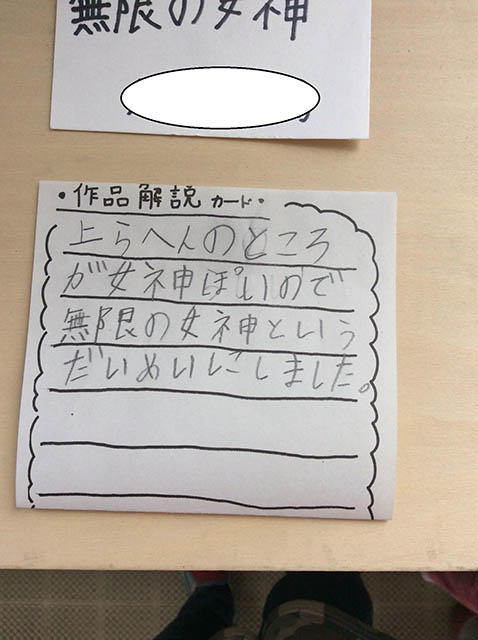 無限の女神
・作品解説カード・
上らへんのところ
が女神ぽいので
無限の女神という
だいめいにしました。